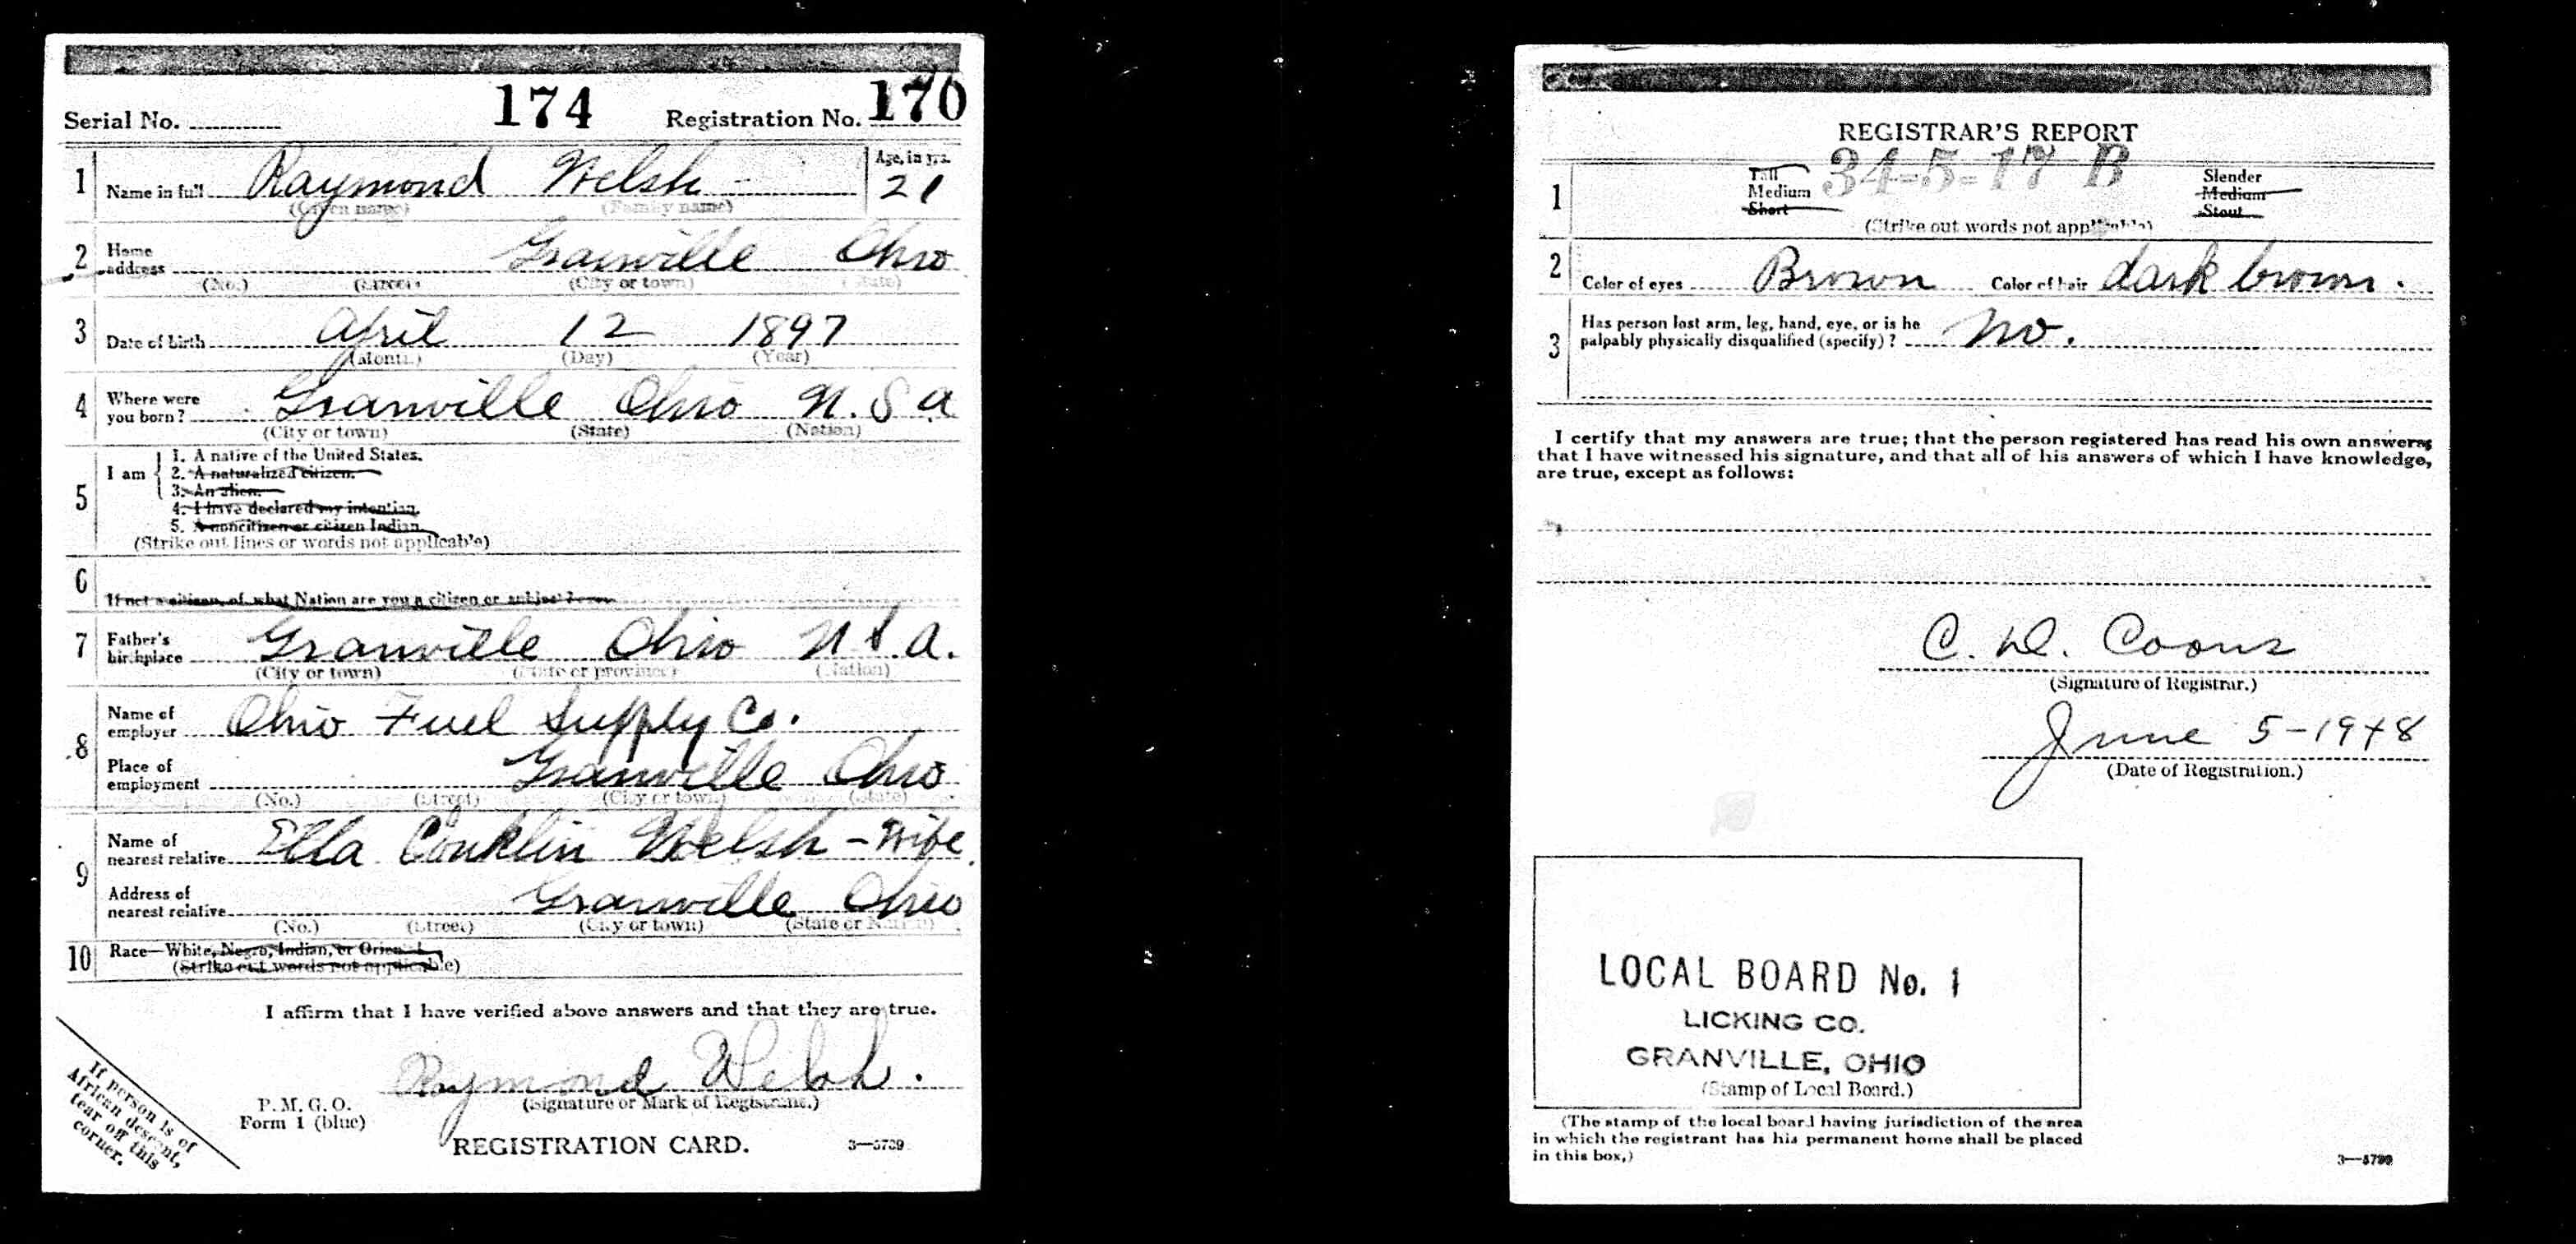 Serial No. 174 Registration No. 170
1 Name in full Raymond Welsh Age, in yrs. 21
(Given name) (Family name)
2 Home address Granville Ohio
(No.) (Street) (City or town) (State)
3 Date of birth April 12 1897
(Month) (Day) (Year)
4 Where were you born? Granville Ohio U.S.a
(City or town) (State) (Nation)
5 I am
1. A native of the United States.
2. A naturalized citizen.
3. An alien.
4. I have declared my intention.
5. A noncitizen or citizen Indian.
(Strike out lines or words not applicable)
6 If not a citizen, of what Nation are you a citizen or subject?
7 Father's birthplace Granville Ohio U S A.
(City or town) (State or province) (Nation)
8 Name of employer Ohio Fuel Supply Co.
Place of employment Granville Ohio
(No.) (Street) (City or town) (State)
9 Name of nearest relative Ella Conklin Welsh - Wife
Address of nearest relative Granville Ohio
(No.) (Street) (City or town) (State or Nation)
10 Race—White, Negro, Indian, or Oriental
(Strike out words not applicable)
I affirm that I have verified above answers and that they are true.
Raymond Welsh.
(Signature or Mark of Registrant.)
P. M. G. O.
Form 1 (blue)
REGISTRATION CARD. 3—5739
If person is of
African descent,
tear off this
corner.
REGISTRAR'S REPORT
34-5-17 B
1 Tall Slender
Medium Medium
Short Stout
(Strike out words not applicable)
2 Color of eyes Brown Color of hair dark brown.
3 Has person lost arm, leg, hand, eye, or is he
palpably physically disqualified (specify)? No.
I certify that my answers are true; that the person registered has read his own answers;
that I have witnessed his signature, and that all of his answers of which I have knowledge,
are true, except as follows:
C. D. Coons
(Signature of Registrar.)
June 5-1918
(Date of Registration.)
LOCAL BOARD No. 1
LICKING CO.
GRANVILLE, OHIO
(Stamp of Local Board.)
(The stamp of the local board having jurisdiction of the area
in which the registrant has his permanent home shall be placed
in this box.)
3—5739